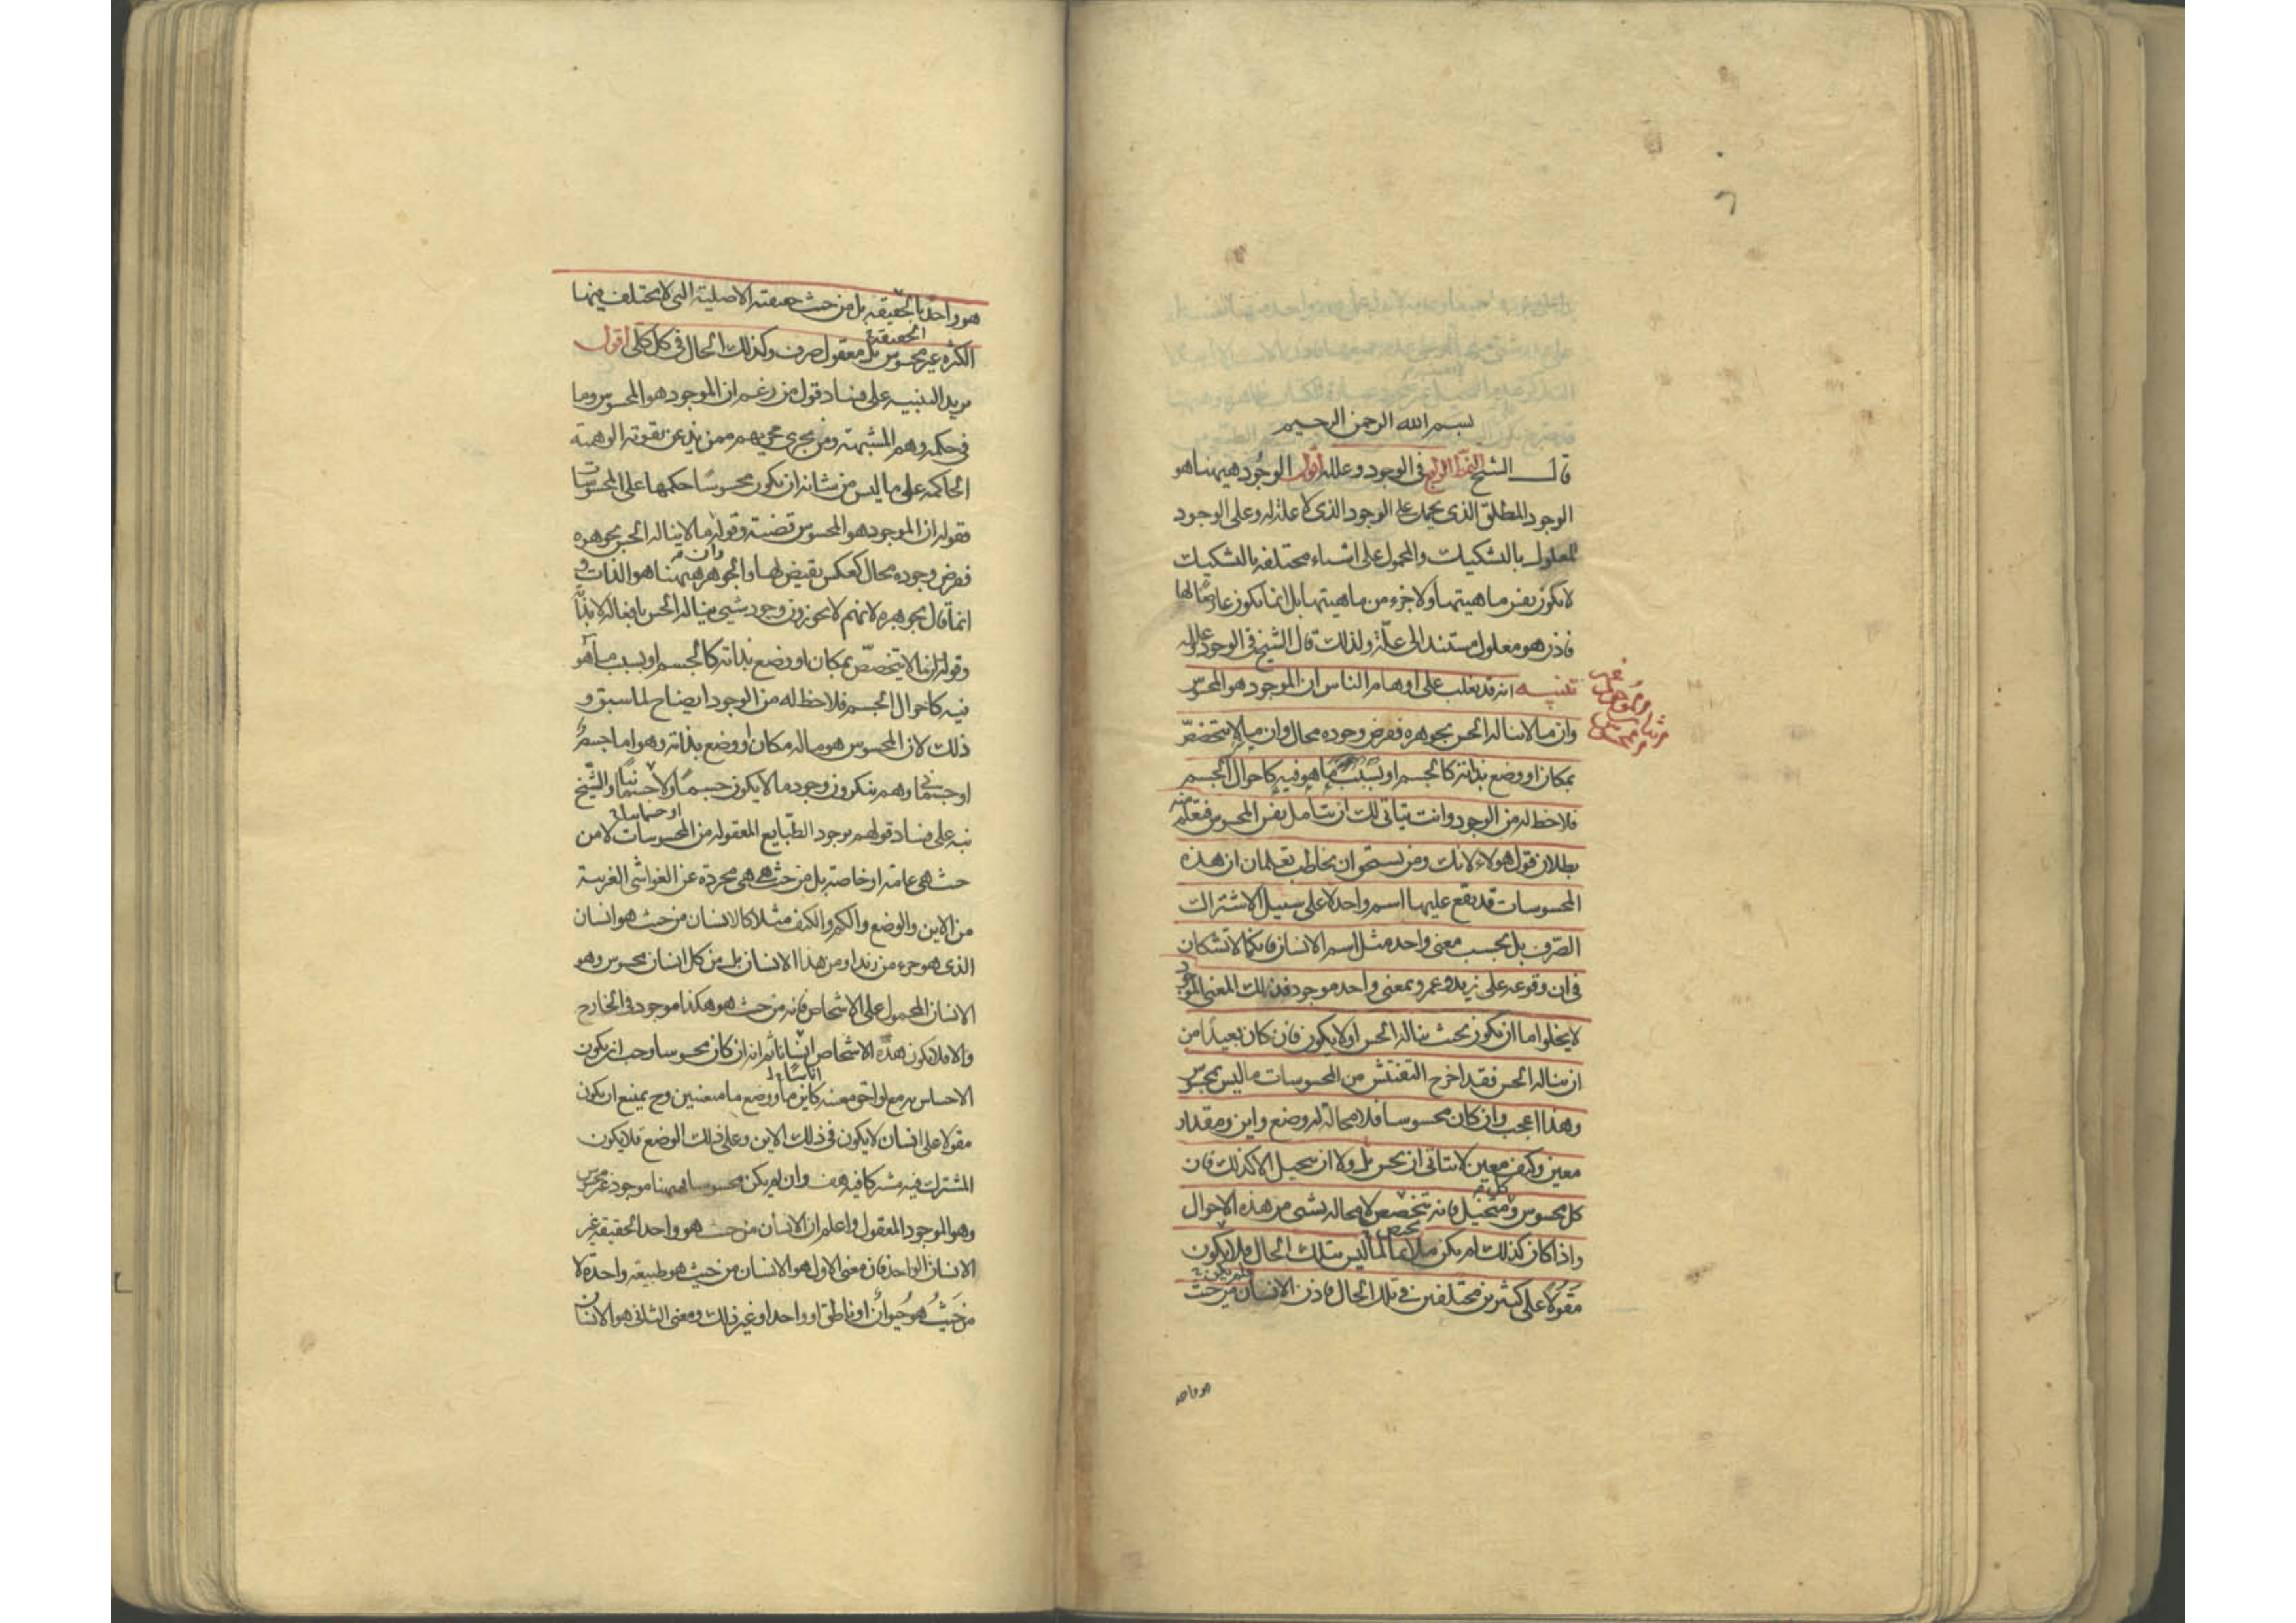 بسم الله الرحمن الرحيم
قال الشيخ النمط الرابع في الوجود وعلله اقول الوجود هيهنا هو
الوجود المطلق الذى يحمل على الوجود الذى لا علة له وعلى الوجود
المعلول بالتشكيك والمحمول على اشياء مختلفه بالتشكيك
لا يكون نفس ماهيتها ولا جزء من ماهيتها بل انما يكون عارضا لها
فاذن هو معلول مستند الى علة ولذلك قال الشيخ في الوجود وعلله
تنبيه انه قد يغلب على اوهام الناس ان الموجود هو المحسوس
وان ما لا يناله الحس بجوهره ففرض وجوده محال وان ما لا يتخصص
بمكان او وضع بذاته كالجسم او بسبب ما هو فيه كاحوال الجسم
فلا حظ له من الوجود وانت يتاتى لك ان تتأمل نفس المحسوس فتعلم منه
بطلان قول هولاء لانك ومن يستحق ان يخاطب تعلمان ان هذه
المحسوسات قد يقع عليها اسم واحد لا على سبيل الاشتراك
الصرف بل بحسب معنى واحد مثل اسم الانسان فانكما لا تشكان
في ان وقوعه على زيد وعمرو بمعنى واحد موجود فذلك المعنى الموجود
لا يخلوا اما ان يكون بحيث يناله الحس او لا يكون فان كان بعيدا من
ان يناله الحس فقد اخرج التفتيش من المحسوسات ما ليس بمحسوس
وهذا اعجب وان كان محسوسا فله لا محالة وضع واين ومقدار
معين وكيف معين لا يتاتى ان يحس بل ولا ان يتخيل الا كذلك فان
كل محسوس وكل متخيل فانه يتخصص لا محالة بشى من هذه الاحوال
واذا كان كذلك لم يكن ملايما لما ليس بتلك الحال فلا يكون
مقولا على كثيرين مختلفين في تلك الحال فاذن الانسان من حيث
هو واحد
هو واحد بالحقيقه بل من حيث حقيقته الاصلية التى لا يختلف فيها
الكثره غير محسوس بل معقول صرف وكذلك الحال في كل كلى اقول
يريد التنبيه على فساد قول من زعم ان الموجود هو المحسوس وما
في حكمه وهم المشبهة ومن يجرى مجريهم ممن يذعن بقوته الوهمية
الحاكمة على ما ليس من شانه ان يكون محسوسا حكمها على المحسوسات
فقوله ان الموجود هو المحسوس قضية وقوله ما لا يناله الحس بجوهره
ففرض وجوده محال كعكس نقيض لها والجوهر هيهنا هو الذات و
انما قال بجوهره لانهم لا يجوزون وجود شىء يناله الحس بافعاله لا بذاته
وقوله ان ما لا يتخصص بمكان او وضع بذاته كالجسم او بسبب ما هو
فيه كاحوال الجسم فلا حظ له من الوجود ايضاح لما سبق و
ذلك لان المحسوس هو ما له مكان او وضع بذاته وهو اما جسم
او جسمانى وهم ينكرون وجود ما لا يكون جسما ولا جسمانيا والشيخ
نبه على فساد قولهم بوجود الطبايع المعقوله من المحسوسات لا من
حيث هى عامة او خاصة بل من حيث هى هى مجردة عن الغواشى الغريبة
من الاين والوضع والكم والكيف مثلا كالانسان من حيث هو انسان
الذى هو جزء من زيد او من هذا الانسان بل من كل انسان محسوس وهو
الانسان المحمول على الاشخاص فانه من حيث هو هكذا موجود في الخارج
والا فلا يكون هذه الاشخاص اناسا ثم انه ان كان محسوسا وجب ان يكون
الاحساس به مع لواحق معينه كاين ما ووضع ما معينين وح يمتنع ان يكون
مقولا على انسان لا يكون في ذلك الاين وعلى ذلك الوضع فلا يكون
المشترك فيه مشتركا فيه هف وان لم يكن محسوسا فهيهنا موجود غير محسوس
وهو الموجود المعقول واعلم ان الانسان من حيث هو واحد الحقيقة غير
الانسان الواحد فان معنى الاول هو الانسان من حيث هو طبيعة واحدة لا
من حيث هو حيوان او ناطق او واحد او غير ذلك ومعنى الثانى هو الانسان